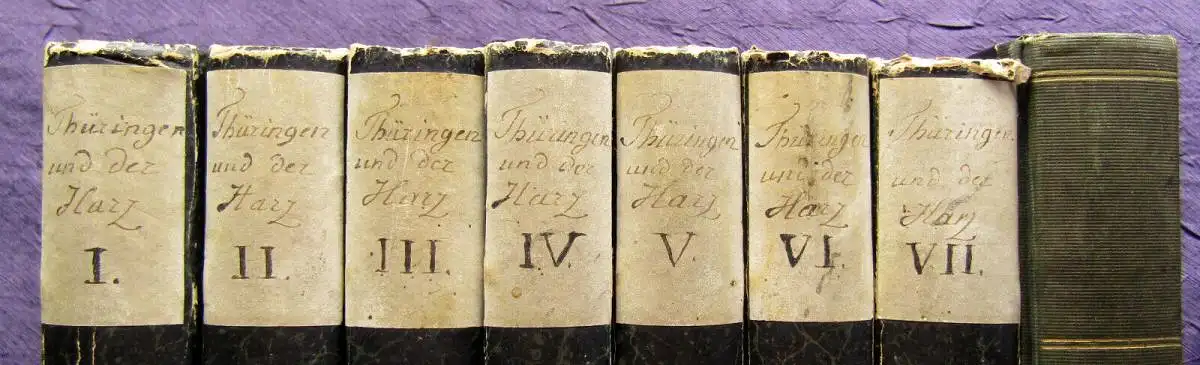 Thüringen
und der
Harz
I.
Thüringen
und der
Harz
II.
Thüringen
und der
Harz
III.
Thüringen
und der
Harz
IV.
Thüringen
und der
Harz
V.
Thüringen
und der
Harz
VI.
Thüringen
und der
Harz
VII.